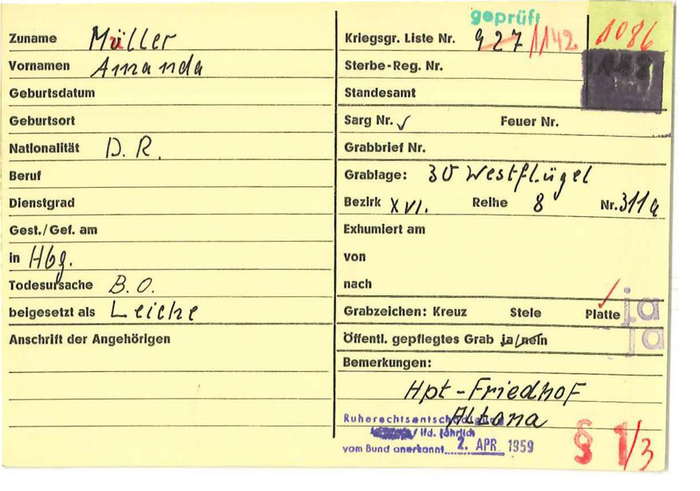 geprüft
Zuname Müller
Vornamen Amanda
Geburtsdatum
Geburtsort
Nationalität D. R.
Beruf
Dienstgrad
Gest./Gef. am
in Hbg.
Todesursache B. O.
beigesetzt als Leiche
Anschrift der Angehörigen
Kriegsgr. Liste Nr. 927 1142 1086
Sterbe-Reg. Nr.
Standesamt
Sarg Nr. ✓ Feuer Nr.
Grabbrief Nr.
Grablage: 30 Westflügel
Bezirk XVI. Reihe 8 Nr. 311a
Exhumiert am
von
nach
Grabzeichen: Kreuz Stele Platte ja
Öffentl. gepflegtes Grab ja/nein ja
Bemerkungen:
Hpt-Friedhof
Altona
lfd. jährlich
vom Bund anerkannt 2. APR. 1959
§ 1/3